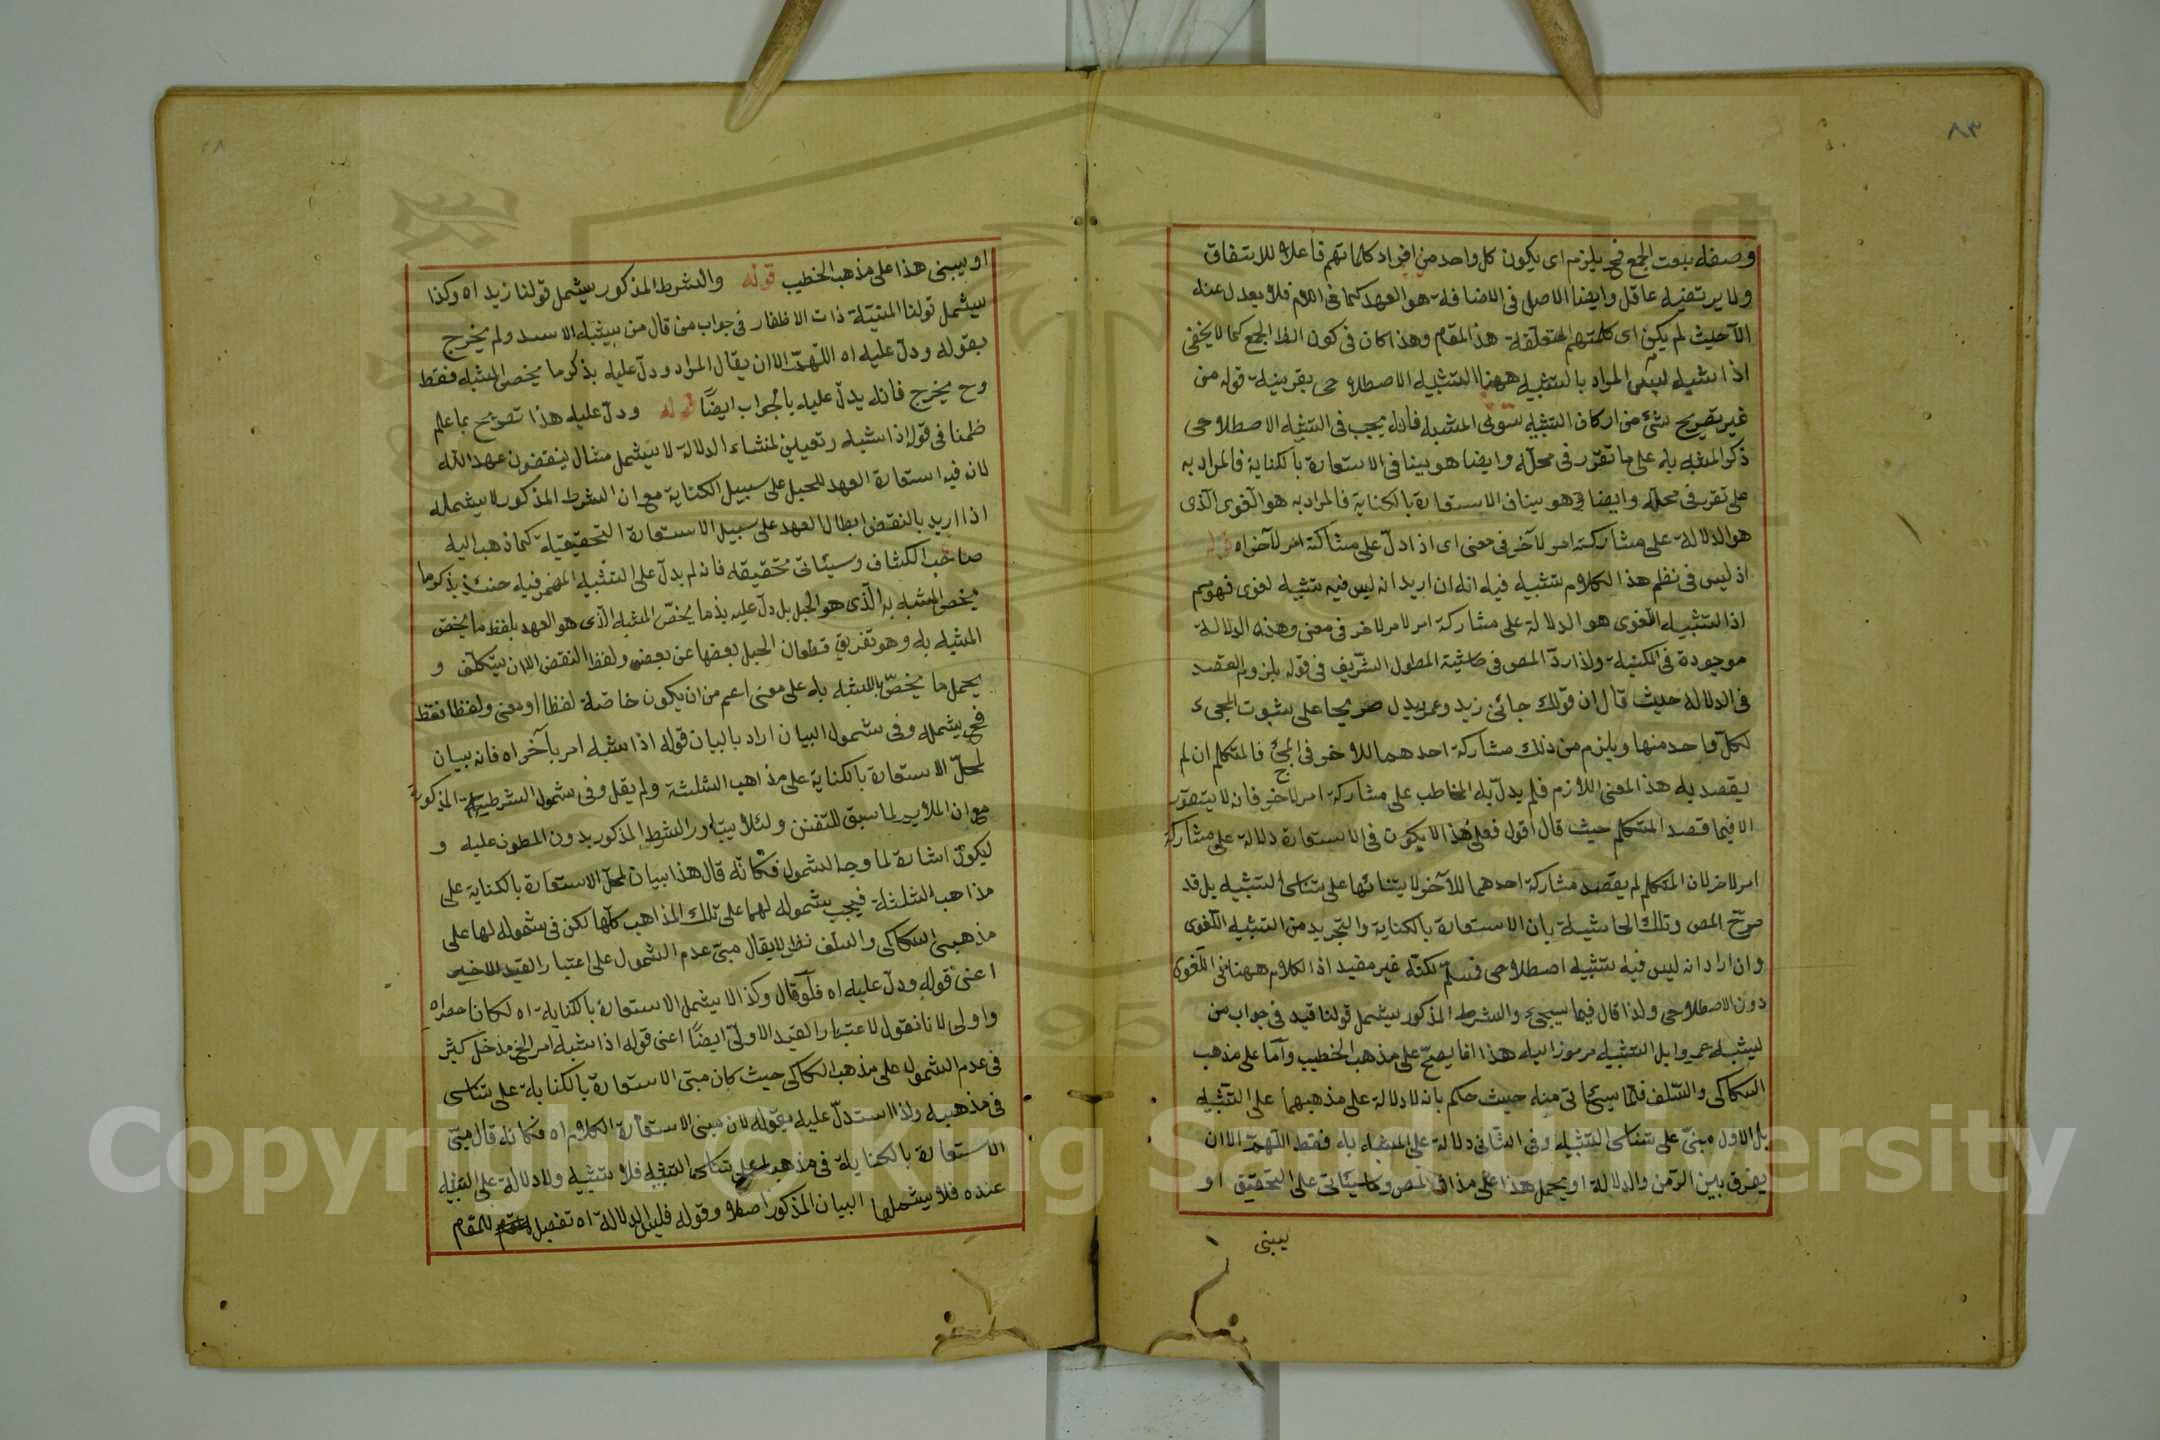 ٨٣
وصفه بنعت الجمع فح يلزم اى يكون كل واحد من افراد كلماتهم فاعلا للاتفاق
ولا يرتضيه عاقل وايضا الاصل فى الاضافة هو العهد كما فى اللام فلا يعدل عنه
الا حيث لم يكن اى كلمتهم المتعلقة هذ المقام وهذا كان فى كون الفظ الجمع كما لا يخفى
اذا شبه ليس المراد بالتشبيه ههنا التشبيه الاصطلاحى بقرينة قوله من
غير تصريح شئ من اركان التشبيه سوى المشبه فانه يجب فى التشبيه الاصطلاحى
ذكر المشبه به على ما تقرر فى محله وايضا هو ينافى الاستعارة بالكناية فالمراد به
على تقرر فى محله وايضا هو ينافى الاستعارة بالكناية فالمراد به هو اللغوى الذى
هو الدلالة على مشاركة امر لآخر فى معنى اى اذا دل على مشاركة امر لآخر اه قوله
اذ ليس فى نظم هذا الكلام تشبيه فيه انه ان اريد انه ليس فيه تشبيه لغوى فهو يم
اذ التشبيه اللغوى هو الدلالة على مشاركة امر لامر لاخر فى معنى وهذه الدلالة
موجودة فى المكنية ولذا ردّ المص فى حاشية المطول الشريف فى قوله بلزوم القصد
فى الدلالة حيث قال ان قولك جائنى زيد وعمر يدل صريحا على ثبوت المجىء
لكل واحد منها ويلزم من ذلك مشاركة احدهما للاخر فى المجئ فالمتكلم ان لم
يقصد به هذ المعنى اللازم فلم يدل به المخاطب على مشاركة امر لاخر فانه لا يتصور
الا فيما قصد المتكلم حيث قال اقول فعلى هذا لا يكون فى الاستعارة دلالة على مشاركة
امر لاخر لان المتكلم لم يقصد مشاركة احدهما للآخر لابتنائها على تناسى التشبيه بل قد
صرّح المص وتلك الحاشية بان الاستعارة بالكناية والتجريد من التشبيه اللغوى
وان اراد انه ليس فيه تشبيه اصطلاحى فسلم لكنه غير مفيد اذ الكلام ههنا فى اللغوى
دون الاصطلاحى ولذا قال فيما سيجىء والشرط المذكور يشمل قولنا قيد فى جواب من
ليشبه عمروا بل التشبيه مرموزا اليه هذا انما يصحّ على مذهب الخطيب وآمّا على مذهب
السكاكى والسلف فلما سيأتى منه حيث حكم بانه لا دلالة على مذهبهما على التشبيه
بل الاول مبنىّ على تناسى التشبيه وفى الثانى دلالة على المشبه به فقط اللهمّ الا ان
يفرق بين الرمن والدلالة او يحمل هذا على مذاق المص وكا سيئاتى على التحقيق او
يبنى
او يبنى هذا على مذهب الخطيب قوله والشرط المذكور يشمل قولنا زيد اه وكذا
يشمل قولنا المنيّة ذات الاظفار فى جواب من قال من يشبه الاسد ولم يخرج
بقوله ودلّ عليه اه اللهمّ الا ان يقال المراد ودلّ عليه بذكر ما يخصّ المشبه فقط
وح يخرج فانه يدلّ عليه بالجواب ايضًا قوله ودلّ عليه هذا تصريح بما علم
ضمنا فى قوله اذا شبه وتعيين لمنشاء الدلالة لا يشمل مثال ينقضون عهد الله
لان فيه استعارة العهد للحبل على سبيل الكناية مع ان الشرط المذكور لا يشمله
اذا اريد بالنقض ابطال العهد على سبيل الاستعارة التحقيقية كما ذهب اليه
صاحب الكشاف وسيئاتى تحقيقه فانه لم يدلّ على التشبيه المضمر فيه حنئذ بذكر ما
يخص المشبه به الّذى هو الحبل بل دلّ عليه بذ ما يخصّ المشبه الّذى هو العهد بلفظ ما يخصّ
المشبه به وهو تفريق قطعان الحبل بعضها عن بعض ولفظ النقض الا ان يتكلّف و
يحمل ما يخصّ المشبه به على معنى اعم من ان يكون خاصّة لفظا او معنى ولفظا فقط
فح يشمله وفى شموله البيان اراد بالبيان قوله اذا شبه امر بآخر اه فانه بيان
لمحلّ الاستعارة بالكناية على مذاهب الثلثة ولم يقل وفى شمول الشرطية المذكورة
مع ان الملايم لما سبق للتفنن ولئلا يتبادر الشرط المذكور بدون المعطوف عليه و
ليكون اشارة لما وجه الشمول فكانّه قال هذا بيان لمحلّ الاستعارة بالكناية على
مذاهب الثلثة فيجب شموله لهما على تلك المذاهب كلّها لكن فى شموله لها على
مذهبى السكاكى والسلف نظر لا يقال مبنىّ عدم الشمول على اعتبار القيد الاخير
اعنى قوله ودلّ عليه اه فلو قال وكذا لا يشمل الاستعارة بالكناية اه لكان احصر
واولى لانا نقول لاعتبار القيد الاولىّ ايضًا اعنى قوله اذا شبه امر الخ مدخل كثير
فى عدم الشموله على مذهب السكاكى حيث كان مبنى الاستعارة بالكناية على تناسى
فى مذهبه ولذا استدلّ عليه بقوله لان مبنى الاستعارة الكلام اه فكانه قال مبنىّ
الاستعارة بالكناية فى مذهب على تناسى التشبيه فلا تشبيه ولا دلالة على التشبيه
عنده فلا يشملها البيان المذكور اصلا وقوله فليس الدلالة اه تفصيل للمقام
Copyright © King Saud University
1957